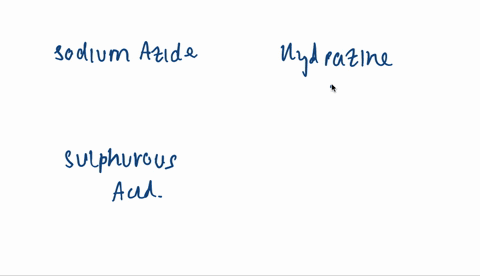 sodium Azide
Hydrazine
sulphurous
Acid.